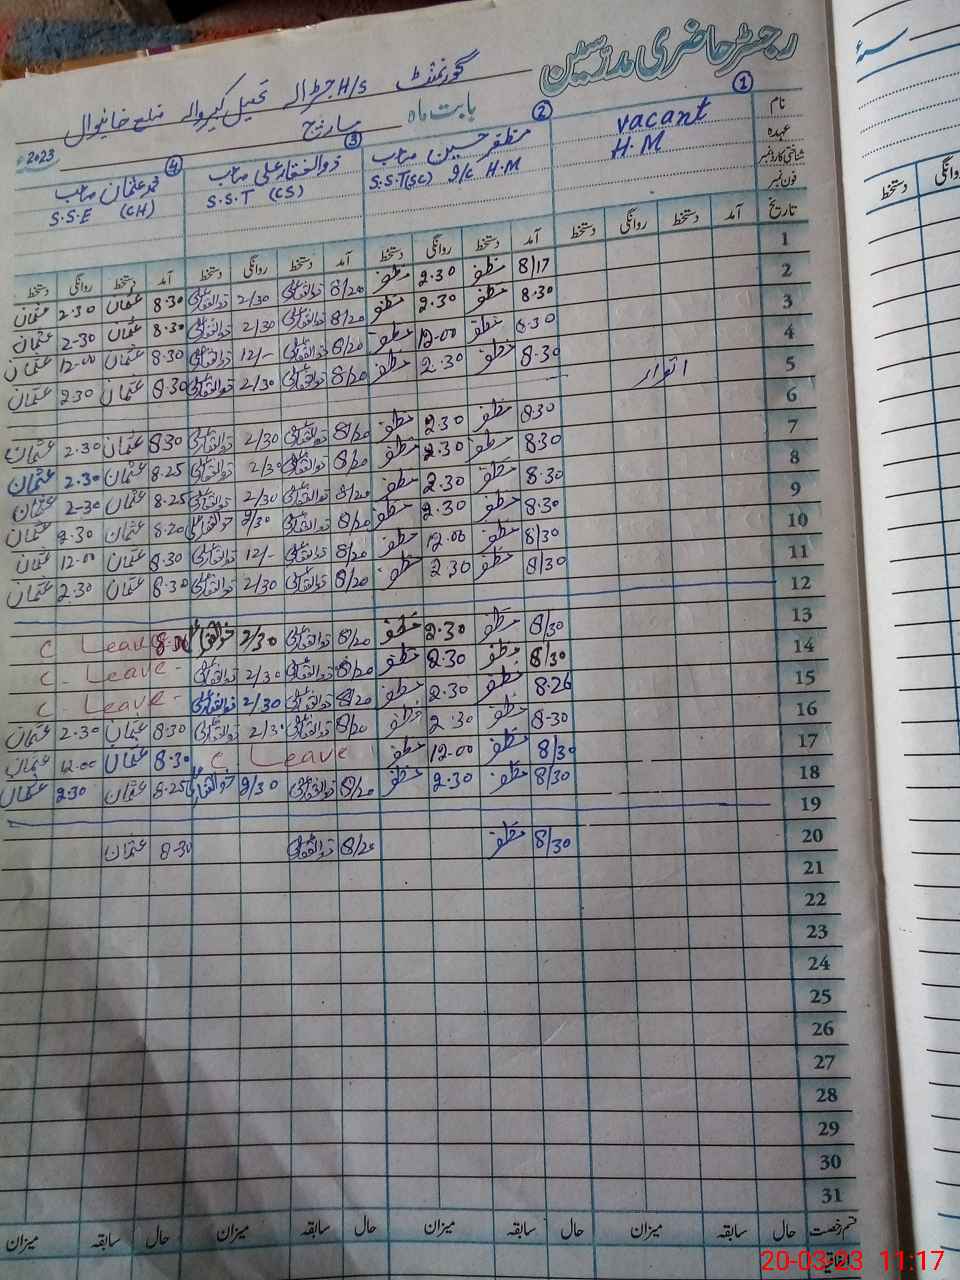 رجسٹر حاضری مدرسین
گورنمنٹ H/S جڑالہ تحصیل کبیروالہ ضلع خانیوال
بابت ماہ مارچ 2023
نام ① vacant ② مظفر حسین صاحب ③ ذوالفقار علی صاحب ④ محمد عثمان صاحب
عہدہ H.M S.S.T(SC) I/C H.M S.S.T (CS) S.S.E (CH)
شناختی کارڈ نمبر
فون نمبر
تاریخ آمد دستخط روانگی دستخط آمد دستخط روانگی دستخط آمد دستخط روانگی دستخط آمد دستخط روانگی دستخط
1 8/17 مظفر 2.30 مظفر 8/20 ذوالفقار علی 2/30 ذوالفقار علی 8.30 عثمان 2.30 عثمان
2 8.30 مظفر 2.30 مظفر 8/20 ذوالفقار علی 2/30 ذوالفقار علی 8.30 عثمان 2-30 عثمان
3 8.30 مظفر 12-00 مظفر 8/20 ذوالفقار علی 12/- ذوالفقار علی 8.30 عثمان 12-00 عثمان
4 8.30 مظفر 2.30 مظفر 8/20 ذوالفقار علی 2/30 ذوالفقار علی 8.30 عثمان 2.30 عثمان
5 اتوار
6 8.30 مظفر 2.30 مظفر 8/20 ذوالفقار علی 2/30 ذوالفقار علی 8.30 عثمان 2.30 عثمان
7 8.30 مظفر 2.30 مظفر 8/20 ذوالفقار علی 2/30 ذوالفقار علی 8.25 عثمان 2.30 عثمان
8 8.30 مظفر 2.30 مظفر 8/20 ذوالفقار علی 2/30 ذوالفقار علی 8.25 عثمان 2-30 عثمان
9 8.30 مظفر 2.30 مظفر 8/20 ذوالفقار علی 2/30 ذوالفقار علی 8.20 عثمان 2.30 عثمان
10 8/30 مظفر 12.00 مظفر 8/20 ذوالفقار علی 12/- ذوالفقار علی 8.30 عثمان 12-00 عثمان
11 8/30 مظفر 2.30 مظفر 8/20 ذوالفقار علی 2/30 ذوالفقار علی 8.30 عثمان 2.30 عثمان
12
13 8/30 مظفر 2.30 مظفر 8/20 ذوالفقار علی 2/30 ذوالفقار علی C Leave
14 8/30 مظفر 2.30 مظفر 8/20 ذوالفقار علی 2/30 ذوالفقار علی C - Leave -
15 8.26 مظفر 2.30 مظفر 8/20 ذوالفقار علی 2/30 ذوالفقار علی C - Leave -
16 8-30 مظفر 2.30 مظفر 8/20 ذوالفقار علی 2/30 ذوالفقار علی 8.30 عثمان 2.30 عثمان
17 8/30 مظفر 12-00 مظفر C Leave 8.30 عثمان 12.00 عثمان
18 8/30 مظفر 2.30 مظفر 8/20 ذوالفقار علی 2/30 ذوالفقار علی 8.25 عثمان 2.30 عثمان
19
20 8/30 مظفر 8/20 ذوالفقار علی 8-30 عثمان
21
22
23
24
25
26
27
28
29
30
31
قسم رخصت حال سابقہ میزان حال سابقہ میزان حال سابقہ میزان حال سابقہ میزان
اتفاقیہ
دستخط روانگی
20-03-23 11:17